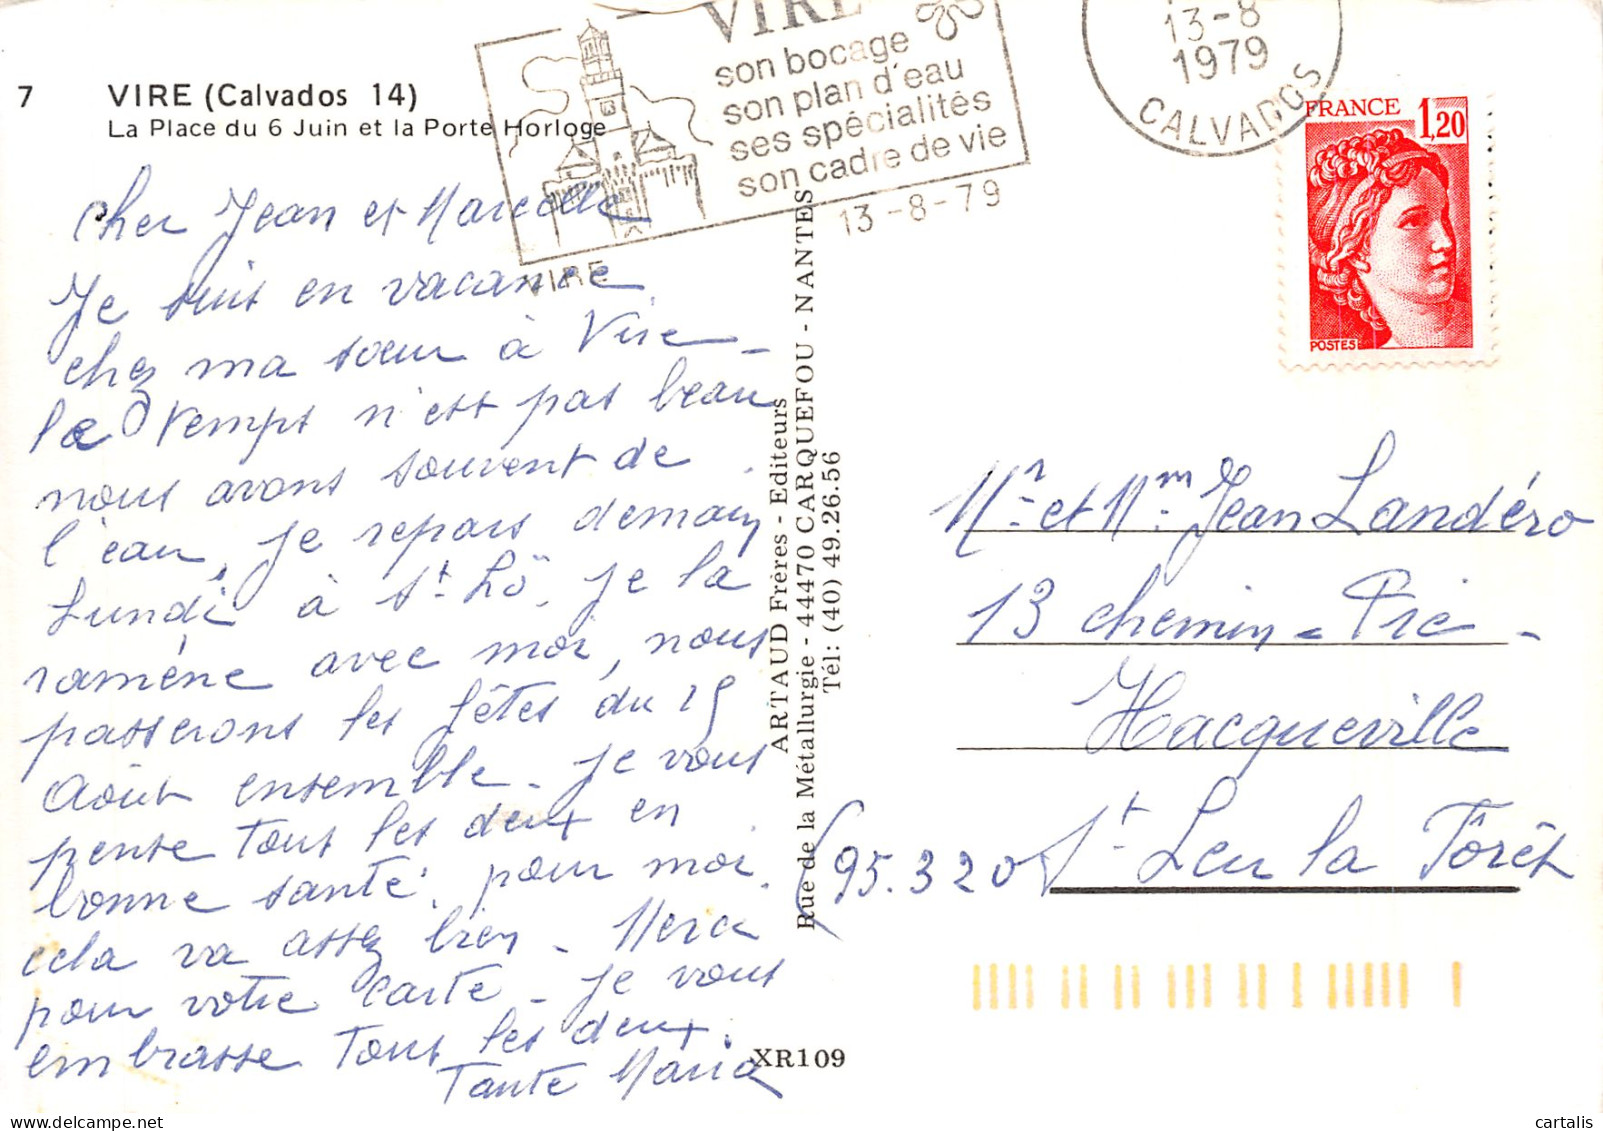 7 VIRE (Calvados 14)
La Place du 6 Juin et la Porte Horloge
VIRE
son bocage
son plan d'eau
ses spécialités
son cadre de vie
VIRE
13-8-79
13-8
1979
CALVADOS
FRANCE 1,20
POSTES
Cher Jean et Marcelle
Je suis en vacance
chez ma sœur à Vire -
le temps n'est pas beau
nous avons souvent de
l'eau, je repars demain
Lundi à St Lô. je la
ramène avec moi, nous
passerons les fêtes du 15
Août ensemble - je vous
pense tous les deux en
bonne santé, pour moi
cela va assez bien - Merci
pour votre carte - je vous
embrasse tous les deux.
Tante Maria
ARTAUD Frères - Editeurs
Rue de la Métallurgie - 44470 CARQUEFOU - NANTES
Tél: (40) 49.26.56
XR109
Mr et Mm Jean Landéro
13 chemin - Pie -
Hacqueville
(95.320 St Leu la Fôrêt
cartalis